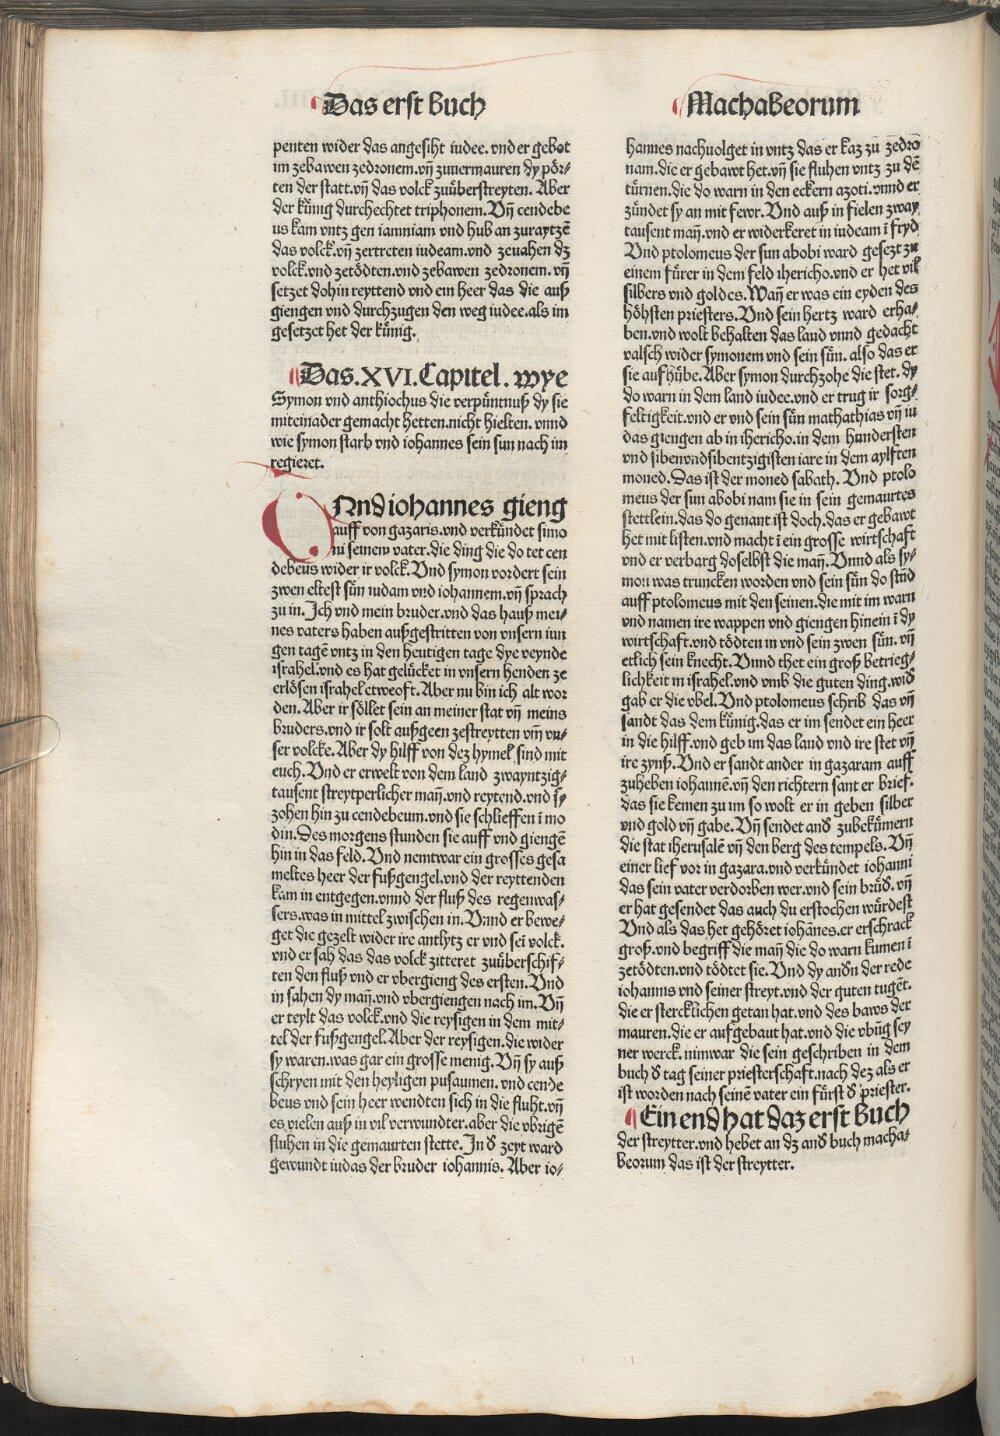 Das erst Buch
penten wider das angesiht iudee. vnd er gebot
im zebawen zedronem. vñ zuuermauren dy pör⸗
ten der statt. vñ das volck zuüberstreyten. Aber
der künig durchechtet triphonem. Vñ cendebe
us kam vntz gen iamniam vnd hub an zuraytzẽ
das volck. vñ zertreten iudeam. vnd zeuahen dz
volck. vnd zetödten. vnd zebawen zedronem. vñ
setzet dohin reyttend vnd ein heer das die auß
giengen vnd durchzugen den weg iudee. als im
gesetzet het der künig.
Das .XVI. Capitel. wye
Symon vnd anthiochus die verpüntnuß dy sie
miteinader gemacht hetten. nicht hielten. vnnd
wie symon starb vnd iohannes sein sun nach im
regieret.
Vnd iohannes gieng
auff von gazaris. vnd verkündet simo
ni seinem vater. die ding die do tet cen
debeus wider ir volck. Vnd symon vordert sein
zwen eltest sün iudam vnd iohannem. vñ sprach
zu in. Ich vnd mein bruder. vnd das hauß mei⸗
nes vaters haben außgestritten von vnsern iun
gen tagẽ vntz in den heutigen tage dye veynde
israhel. vnd es hat gelücket in vnsern henden ze
erlösen israhel etweoft. Aber nu bin ich alt wor
den. Aber ir söllet sein an meiner stat vñ meins
bruders. vnd ir solt außgeen zestreytten vm̃ vn⸗
ser volcke. Aber dy hilff von dez hymel sind mit
euch. Vnd er erwelt von dem land zwayntzig⸗
tausent streytperlicher mañ. vnd reytend. vnd sy
zohen hin zu cendebeum. vnd sie schlieffen ĩ mo
din. Des morgens stunden sie auff vnd giengẽ
hin in das feld. Vnd nemtwar ein grosses gesa
meltes heer der fußgengel. vnd der reyttenden
kam in entgegen. vnnd der fluß des regenwas⸗
sers. was in mittel zwischen in. Vnnd er bewe⸗
get die gezelt wider ire antlytz er vnd seĩ volck.
vnd er sah das das volck zitteret zuüberschif⸗
ten den fluß vnd er vbergieng des ersten. Vnd
in sahen dy mañ. vnd vbergiengen nach im. Vñ
er teylt das volck. vnd die reysigen in dem mit⸗
tel der fußgengel. Aber der reysigen. die wider
sy waren. was gar ein grosse menig. Vñ sy auß
schryen mit den heyligen pusaumen. vnd cende
beus vnd sein heer wendten sich in die fluht. vñ
es vielen auß in vil verwundter. aber die vbrigẽ
fluhen in die gemaurten stette. In d̕ zeyt ward
gewundt iudas der bruder iohannis. Aber io⸗
Machabeorum
hannes nachuolget in vntz das er kaz zu zedrõ
nam. die er gebawt het. vñ sie fluhen vntz zu dẽ
türnen. die do warn in den eckern azoti. vnnd er
zündet sy an mit fewr. Vnd auß in fielen zway
tausent mañ. vnd er widerkeret in iudeam ĩ fryd
Vnd ptolomeus der sun abobi ward gesezt zu
einem fürer in dem feld ihericho. vnd er het vil
silbers vnd goldes. Wañ er was ein eyden des
höhsten priesters. Vnd sein hertz ward erha⸗
ben. vnd wolt behalten das land vnnd gedacht
valsch wider symonem vnd sein sün. also das er
sie aufhübe. Aber symon durchzohe die stet. dy
do warn in dem land iudee. vnd er trug ir sorg⸗
feltigkeit. vnd er vnd sein sün mathathias vñ iu
das giengen ab in ihericho. in dem hundersten
vnd sibenvndsibentzigisten iare in dem aylften
moned. Das ist der moned sabath. Vnd ptolo
meus der sun abobi nam sie in sein gemaurtes
stettlein. das do genant ist doch. das er gebawt
het mit listen. vnd macht ĩ ein grosse wirtschaft
vnd er verbarg doselbst die mañ. Vnnd als sy⸗
mon was truncken worden vnd sein sün do stũd
auff ptolomeus mit den seinen. die mit im warn
vnd namen ire wappen vnd giengen hinein ĩ dy
wirtschaft. vnd tödten in vnd sein zwen sün. vñ
etlich sein knecht. Vnnd thet ein groß betrieg⸗
lichkeit in israhel. vnd vmb die guten ding. wid̕
gab er die vbel. Vnd ptolomeus schrib das vñ
sandt das dem künig. das er im sendet ein heer
in die hilff. vnd geb im das land vnd ire stet vñ
ire zynß. Vnd er sandt ander in gazaram auff
zuheben iohannẽ. vñ den richtern sant er brief.
das sie kemen zu im so wolt er in geben silber
vnd gold vñ gabe. Vñ sendet and̕ zubekümern
die stat iherusalẽ vñ den berg des tempels. Vñ
einer lief vor in gazara. vnd verkündet iohanni
das sein vater verdorben wer. vnd sein brüd̕. vñ
er hat gesendet das auch du erstochen würdest
Vnd als das het gehöret iohãnes. er erschrack
groß. vnd begriff die mañ die do warn kumen ĩ
zetödten. vnd tödtet sie. Vnd dy and̕n der rede
iohannis vnd seiner streyt. vnd der guten tugẽt.
die er stercklichen getan hat. vnd des baws der
mauren. die er aufgebaut hat. vnd die vbũg sey
ner werck. nimwar die sein geschriben in dem
buch d̕ tag seiner priesterschaft. nach dez als er
ist worden nach seinẽ vater ein fürst d̕ priester.
Ein end hat daz erst Buch
der streytter. vnd hebet an dz and̕ buch macha⸗
beorum das ist der streytter.